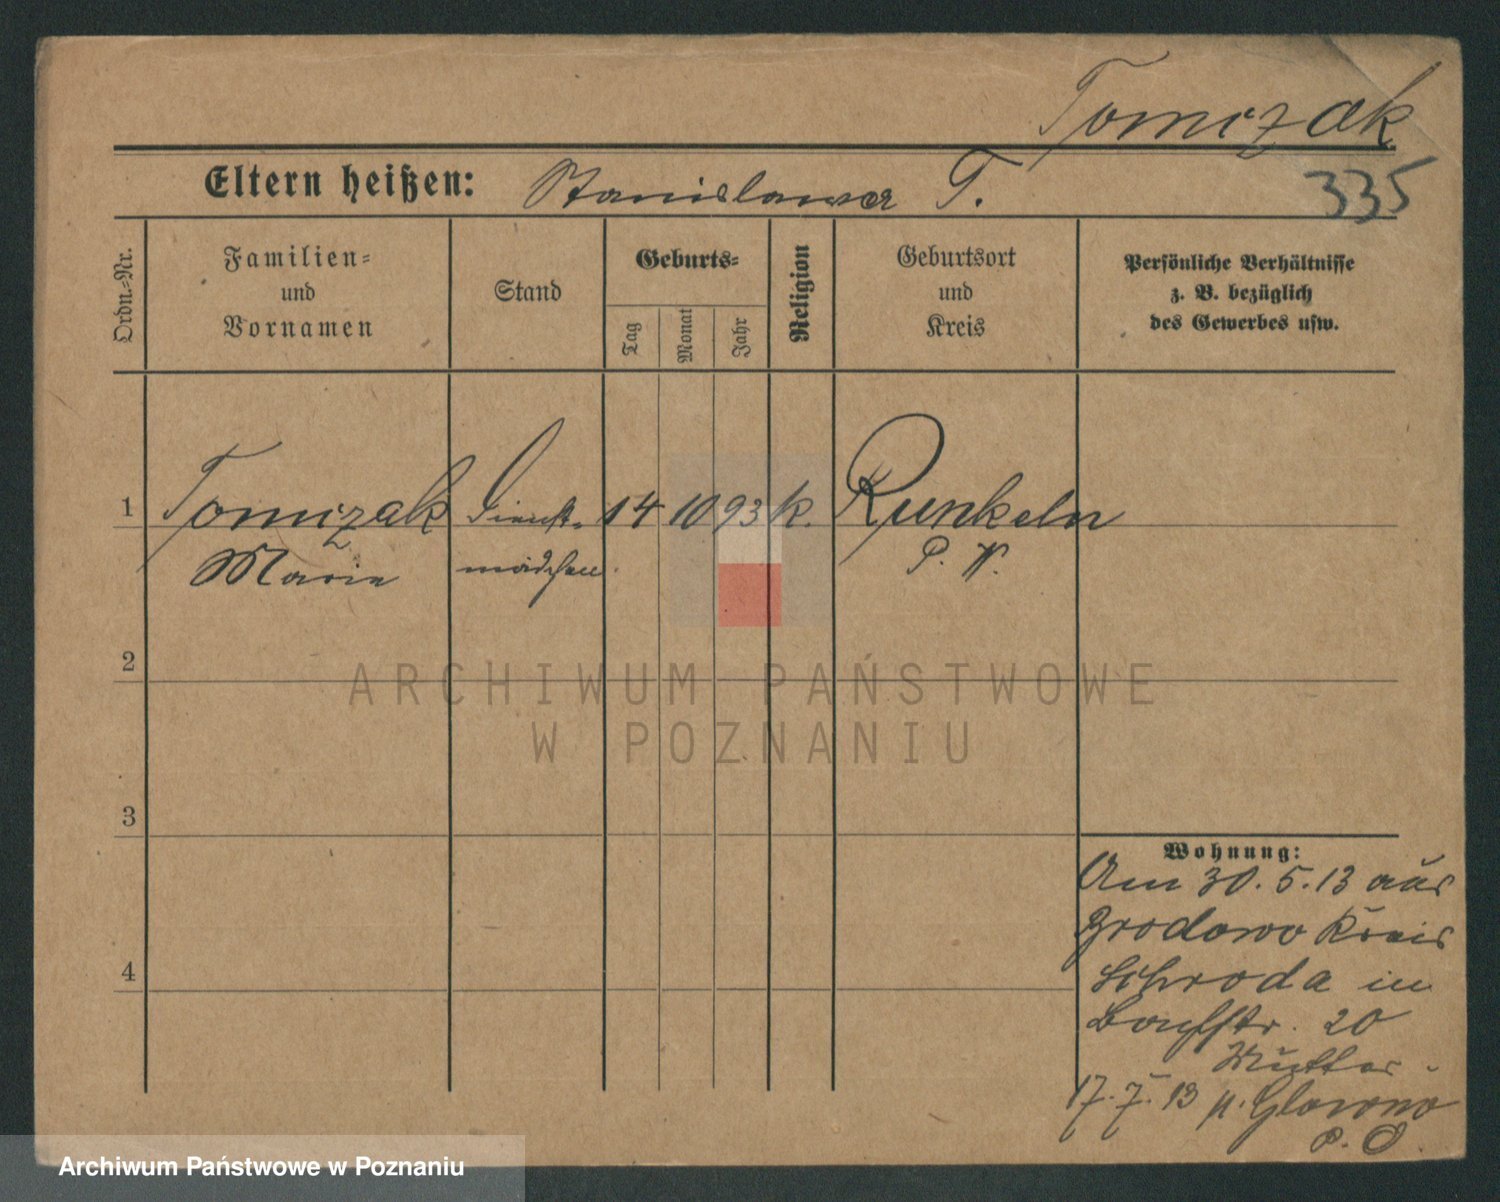 Tomczak
Eltern heißen: Stanislawa T.
335
Ordn.=Nr.
Familien=
und
Vornamen
Stand
Geburts=
Tag
Monat
Jahr
Religion
Geburtsort
und
Kreis
Persönliche Verhältnisse
z. B. bezüglich
des Gewerbes usw.
1 Tomczak Dienst= 14 10 93 k. Runkeln
Marie mädchen. P. W.
2
3
4
Wohnung:
Am 30.5.13 aus
Brodowo Kreis
Schroda in
20
Mutter.
17.7.13 n. Glowno
P. O.
ARCHIWUM PAŃSTWOWE
W POZNANIU
Archiwum Państwowe w Poznaniu